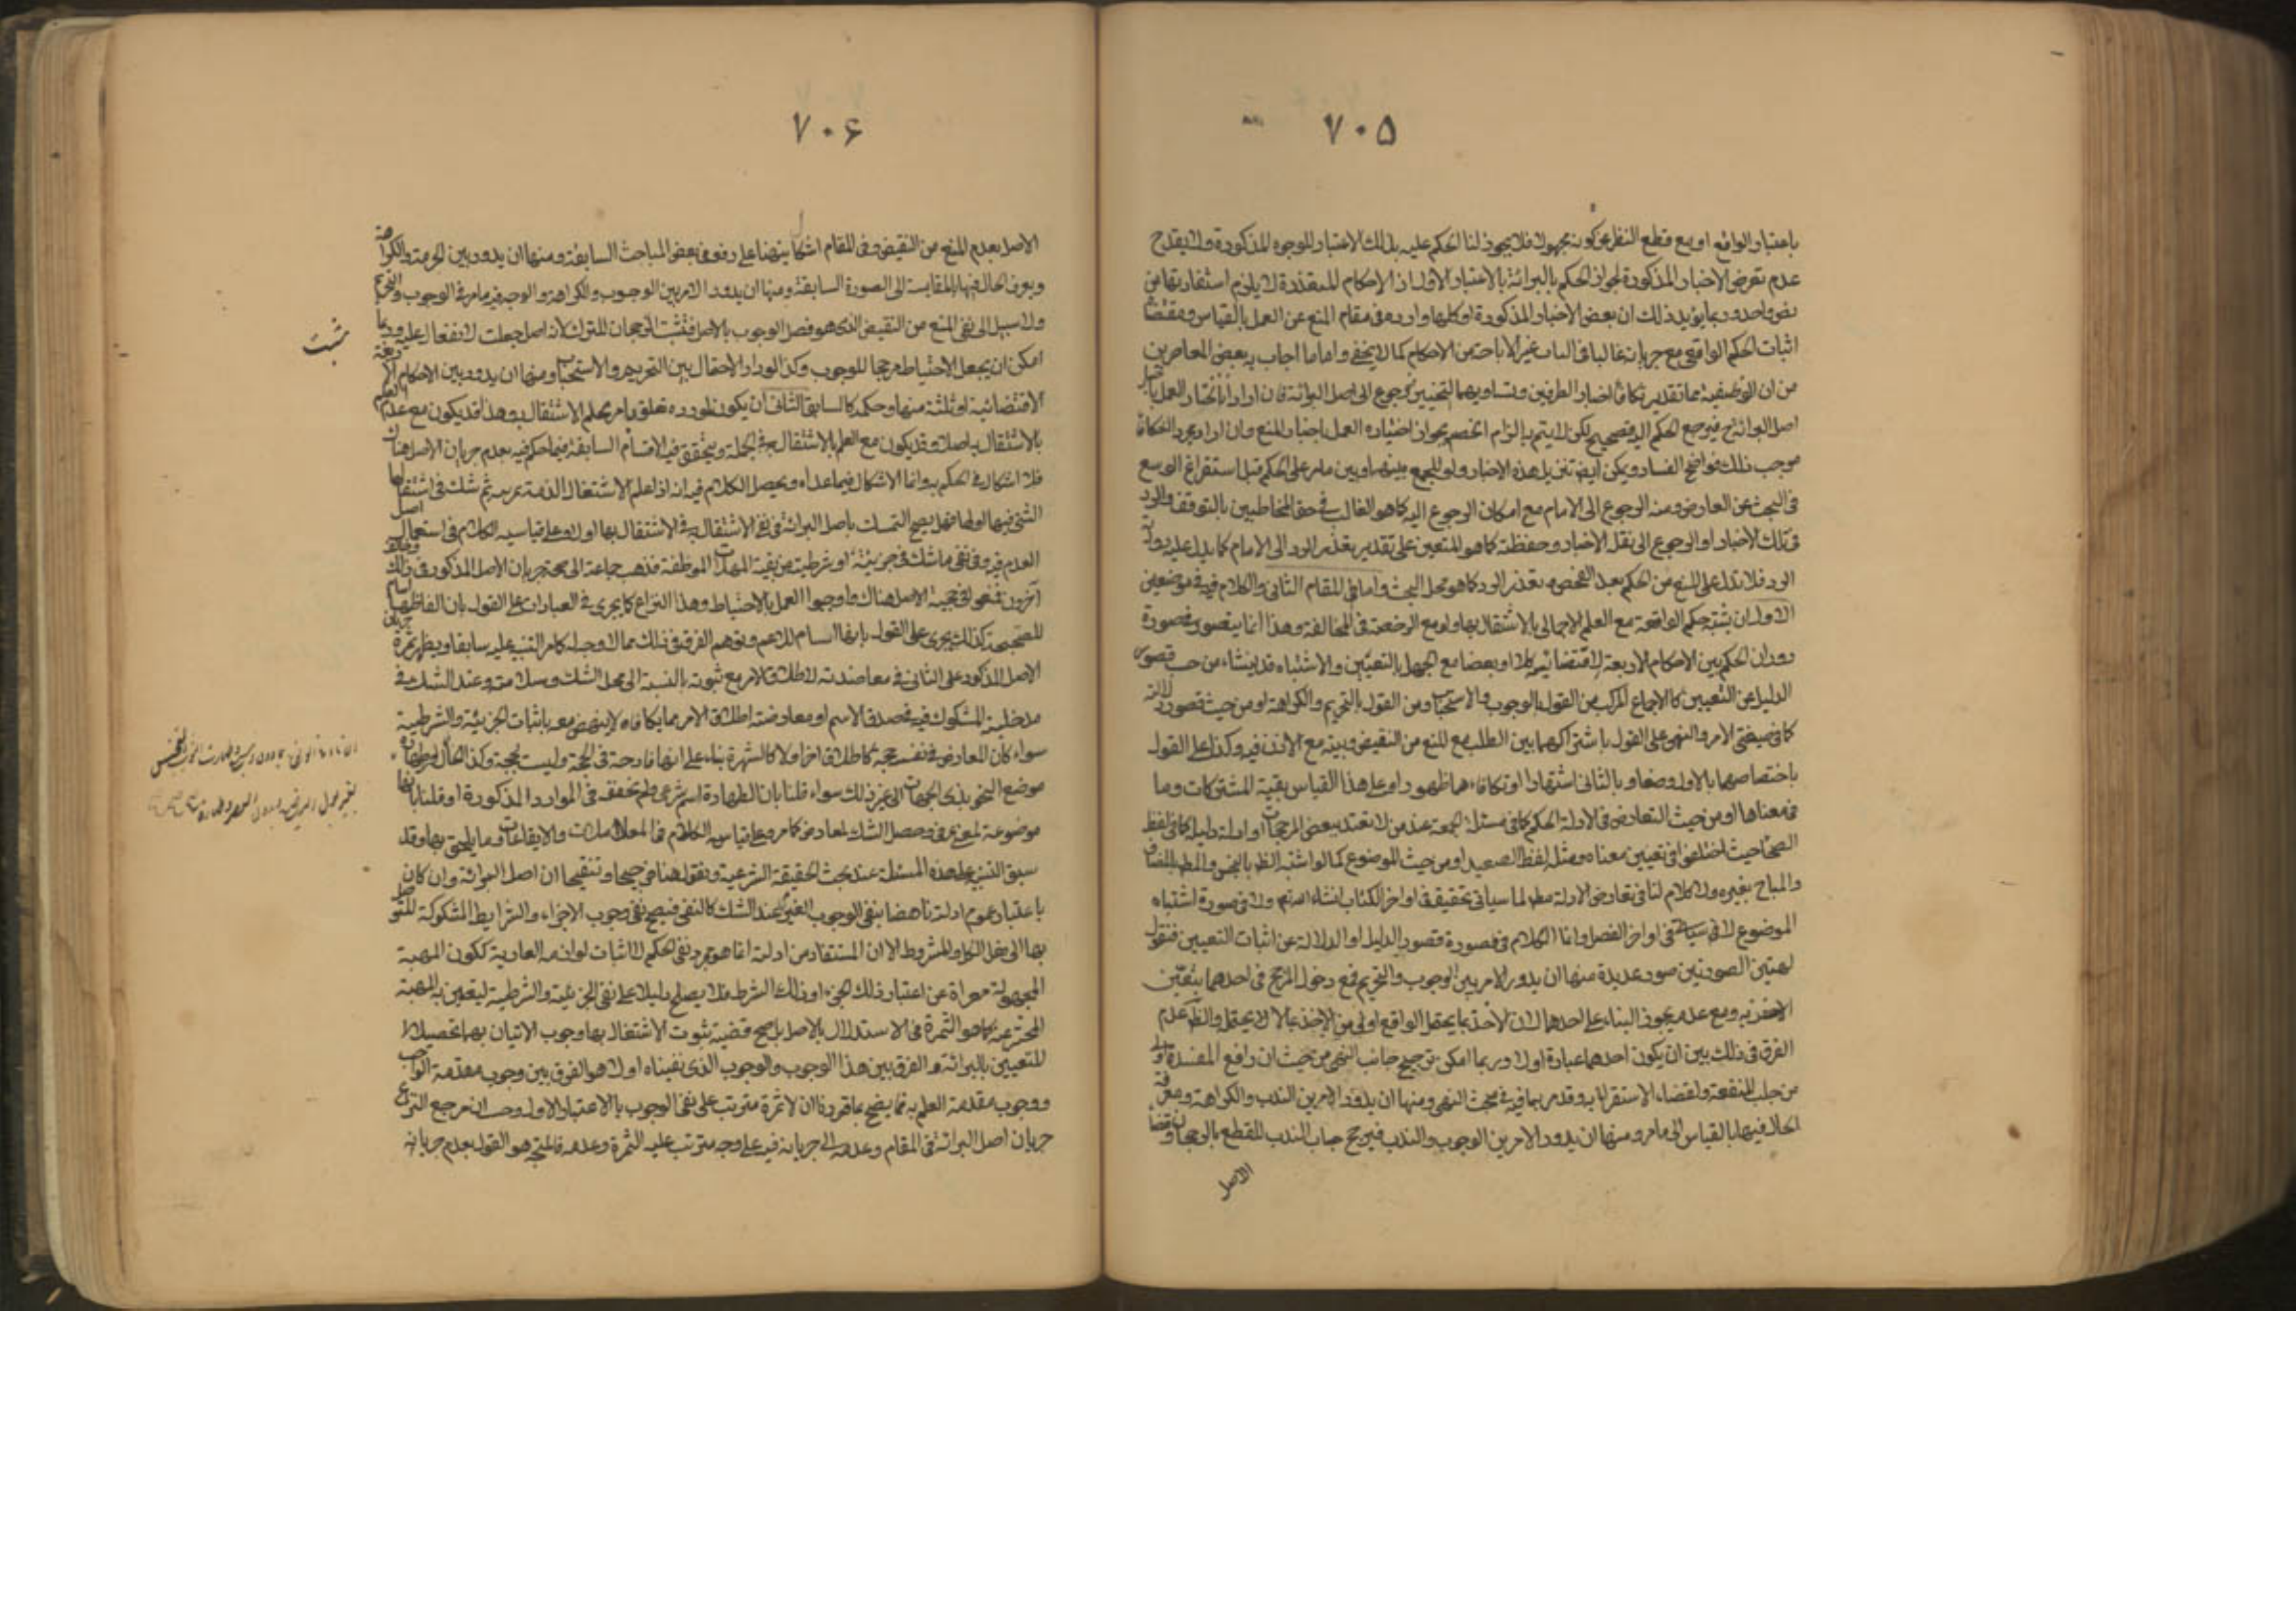 ٧٠۵
باعتبار الواقع او مع قطع النظر عن كونه مجهولا فلا يجوز لنا الحكم عليه بذلك الاعتبار للوجوه المذكورة ولا يقدح
عدم تعرض الاخبار المذكورة لجواز الحكم بالبرائة بالاعتبار الاول اذ الاحكام المتعددة لا يلزم استفادتها من
نص واحد وربما يؤيد ذلك ان بعض الاخبار المذكورة او كلها وارد فى مقام المنع عن العمل بالقياس ومقتضاه
اثبات الحكم الواقعى مع جريانه غالبا فى اثبات غير الاباحة من الاحكام كما لا يخفى واما ما اجاب به بعض المعاصرين
من ان الوظيفة مما تقدير تكافؤ اخبار الطرفين وتساويهما التخيير فيرجع الى اصل البرائة فان اراد انا نختار العمل باخبار
اصل البرائة فيرجع الحكم اليه فصحيح لكن لا يتم به الزام الخصم لجواز اختياره العمل باخبار المنع وان اراد مجرد التكافؤ
موجب ذلك فواضح الفساد ويمكن ايضا تنزيل هذه الاخبار ولو للجمع بينها وبين ما مر على الحكم قبل استفراغ الوسع
فى البحث عن المعارض ومنه الرجوع الى الامام مع امكان الرجوع اليه كما هو الغالب فى حق المخاطبين بالتوقف والرد
فى تلك الاخبار او الرجوع الى نقل الاخبار وحفظته كما هو المتعين على تقدير تعذر الرد الى الامام كما يدل عليه رواية
الرد فلا تدل على المنع من الحكم بعد الفحص وتعذر الرد كما هو محل البحث واما فى المقام الثانى والكلام فيه فى موضعين
الاول ان يشتبه حكم الواقعة مع العلم الاجمالى بالاشتغال بها ولو مع الرخصة فى المخالفة وهذا انما يتصور فى صورة
دوران الحكم بين الاحكام الاربعة الاقتضائية كلا او بعضا مع الجهل بالتعيين والاشتباه قد ينشاء من حيث قصور
الدليل عن التعيين كالاجماع المركب من القول بالوجوب والاستحباب ومن القول بالتحريم والكراهة او من حيث قصور دلالته
كما فى صيغتى الامر والنهى على القول باشتراكهما بين الطلب مع المنع من النقيض وبينه مع الاذن فيه وكذا على القول
باختصاصهما بالاول وضعا وبالثانى اشتهارا او تكافاء هما ظهورا وعلى هذا القياس بقية المشتركات وما
فى معناها او من حيث التعارض فى الادلة الحكم كما فى مسئلة الجمعة عند من لا يعتد ببعض المرجحات او ادلة دليله كما فى لفظ
الصحاح حيث اختلفوا فى تعيين معناه ومثل لفظ الصعيد او من حيث الموضوع كما لو اشتبه الطاهر بالنجس والمطلق بالمضاف
والمباح بغيره ولا كلام لنا فى تعارض الادلة لما سياتى تحقيقه فى اواخر الكتاب انشاء الله تعالى ولا فى صورة اشتباه
الموضوع لما سياتى فى اواخر الفصل وانما الكلام فى صورة قصور الدليل او الدلالة عن اثبات التعيين فنقول
لهتين الصورتين صور عديدة منها ان يدور الامر بين الوجوب والتحريم فمع دخول المرجح فى احدهما يتعين
الاخذ به ومع عدمه يجوز البناء على احدهما لان الاخذ بما يحتمل الواقع اولى من الاخذ بما لا يحتمل والظاهر عدم
الفرق فى ذلك بين ان يكون احدهما عبادة اولا وربما امكن ترجيح جانب النهى من حيث ان دافع المفسدة اولى
من جلب المنفعة ولقضاء الاستقراء به وقد مر بما فيه فى مبحث النهى ومنها ان يدور الامر بين الندب والكراهة ومعرفة
الحال فيها بالقياس الى ما مر ومنها ان يدور الامر بين الوجوب والندب فيرجح جانب الندب للقطع بالرجحان وقضاء
الاصل
٧٠۶
الاصل بعدم المنع من النقيض وفى المقام اشكال ينضا على دفعه فى بعض المباحث السابقة ومنها ان يدور بين الحرمة والكراهة
ويعرف الحال فيها بالمقايسة الى الصورة السابقة ومنها ان يدور الامر بين الوجوب والكراهة والوجه فيه ما مر فى الوجوب والتحريم
ولا سبيل الى نفى المنع من النقيض الذى هو فصل الوجوب بالاصل فتثبت الرجحان للترك لانه اصل جعلت لا نعمال عليه وربما
امكن ان يجعل الاحتياط مرجحا للوجوب وكذا لو دار الاحتمال بين التحريم والاستحباب ومنها ان يدور بين الاحكام الاربعة
الاقتضائية او ثلثة منها وحكمه كالسابق الثانى ان يكون لمورده تعلق بامر يعلم الاشتغال به وهذا قد يكون مع عدم العلم
بالاشتغال به اصلا وقد يكون مع العلم بالاشتغال به فى الجملة ويتحقق فيه الاقسام السابقة فيما حكم فيه بعدم جريان الاصل هناك
فلا اشكال فى الحكم به وانما الاشكال فيما عداه ويحصل الكلام فيه انه اذا علم الاشتغال الذمة بمهية ثم شك فى اشتغال
الشئ فيها او لها فهل يصح التمسك باصل البرائة فى نفى الاشتغال به فى الاشتغال بها اولا وعلى قياسه الكلام فى استعمال اصل
العدم فيه وفى نفى ما شك فى جزئيته او شرطيته من بقية المهيات الموظفة فذهب جماعة الى صحة جريان الاصل المذكور فى ذلك وخالف
آخرون فمنعوا فى حجية الاصل هناك واوجبوا العمل بالاحتياط وهذا النزاع كما يجرى فى العبادات على القول بان الفاظها اسام
للصحيحة كذلك يجرى على القول بانها اسام للاعم وتوهم الفرق فى ذلك مما لا وجه له كما مر التنبيه عليه سابقا ويظهر ثمرة جريان
الاصل المذكور على الثانى فى معاضدته لاطلاق الامر مع ثبوته بالنسبة الى محل الشك وسلامته وعند الشك فى
مدخلية المشكوك فيه فى صدق الاسم او معارضة اطلاق الامر بما يكافاه لا ينهض معه باثبات الجزئية والشرطية
سواء كان المعارض فى نفسه حجة كاطلاق اخر اولا كالشهرة بناء على انها قادحة فى الحجة وليست بحجة وكذا الحال فى طهارة
موضع النجو بذى الجهات الى غير ذلك سواء قلنا بان الطهارة اسم شرعى ولم تحققه فى الموارد المذكورة او قلنا بانها
موضوعة لمعنى عرفى وحصل الشك لمعارض كما مر وعلى قياسه الكلام فى المعاملات والايقاعات وما يلحق بها وقد
سبق التنبيه على هذه المسئلة عند بحث الحقيقة الشرعية ونقول هنا توضيحا وتنقيحا ان اصل البرائة وان كان
باعتبار عموم ادلته ناهضا بنفى الوجوب الغيرى عند الشك كالنفسى فيصح نفى وجوب الاجزاء والشرايط المشكوكة للتوصل
بها الى فعل الكل والمشروط الا ان المستفاد من ادلته انما هو مجرد نفى الحكم لا اثبات لوازمه العادية ككون المهية
المجعولة معراة عن اعتبار ذلك الجزء او ذلك الشرط فلا يصلح دليلا على نفى الجزئية والشرطية ليتعين به المهية
المخترعة كما هو الثمرة فى الاستدلال بالاصل بل صح قضية ثبوت الاشتغال بها وجوب الاتيان بهما تحصيلا
للتعيين بالبرائة والفرق بين هذا الوجوب والوجوب الذى نفيناه اولا هو الفرق بين وجوب مقدمة الواجب
ووجوب مقدمة العلم به نما يضح بما قررنا ان لا ثمرة مترتب على نفى الوجوب بالاعتبار الاول وحيث ان مرجع النزاع
جريان اصل البرائة فى المقام وعدمه الى جريانه فيه على وجه مترتب عليه الثمرة وعدمه فالمتجه هو القول بعدم جريانه